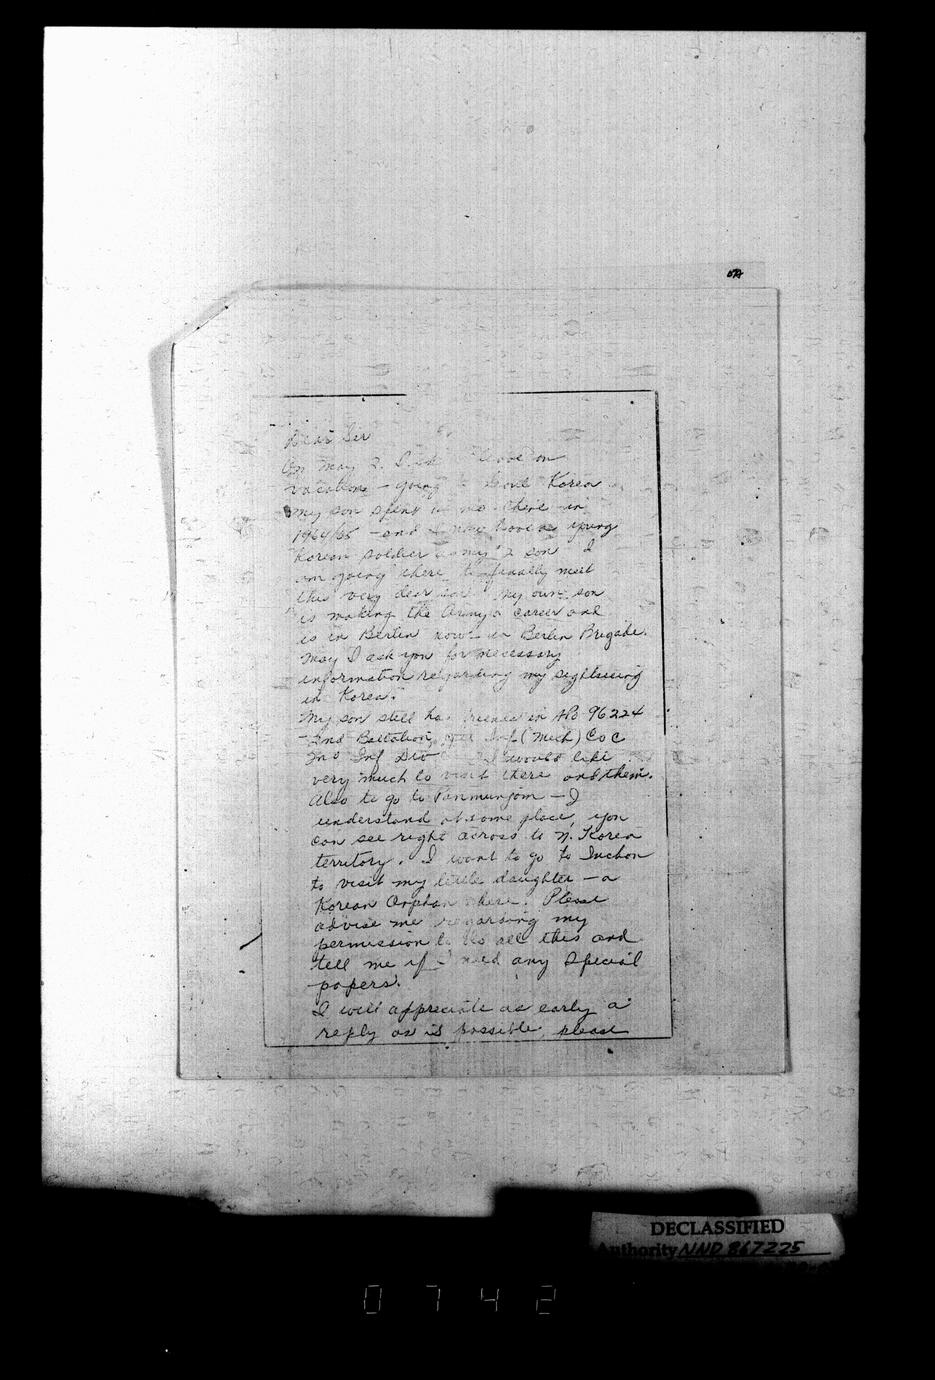 Dear Sir
On May 2. I leave on
vacation - going to South Korea
My son spent there in
1964/65 - and I now have a young
Korean soldier as my 2 son I
am going there to finally meet
this very dear son. My own son
is making the Army a career and
is in Berlin now in Berlin Brigade.
May I ask you for necessary
information regarding my sightseeing
in Korea?
My son still has friends in APO 96224
2nd Battalion, Inf (Mech) Co C
2nd Inf Div I would like
very much to visit there and them.
Also to go to Panmunjom - I
understand at some place, you
can see right across to N. Korea
territory. I want to go to Inchon
to visit my little daughter - a
Korean Orphan there. Please
advise me regarding my
permission to do all this and
tell me if I need any special
papers.
I will appreciate as early a
reply as is possible, please
DECLASSIFIED
Authority NND 867225
0742